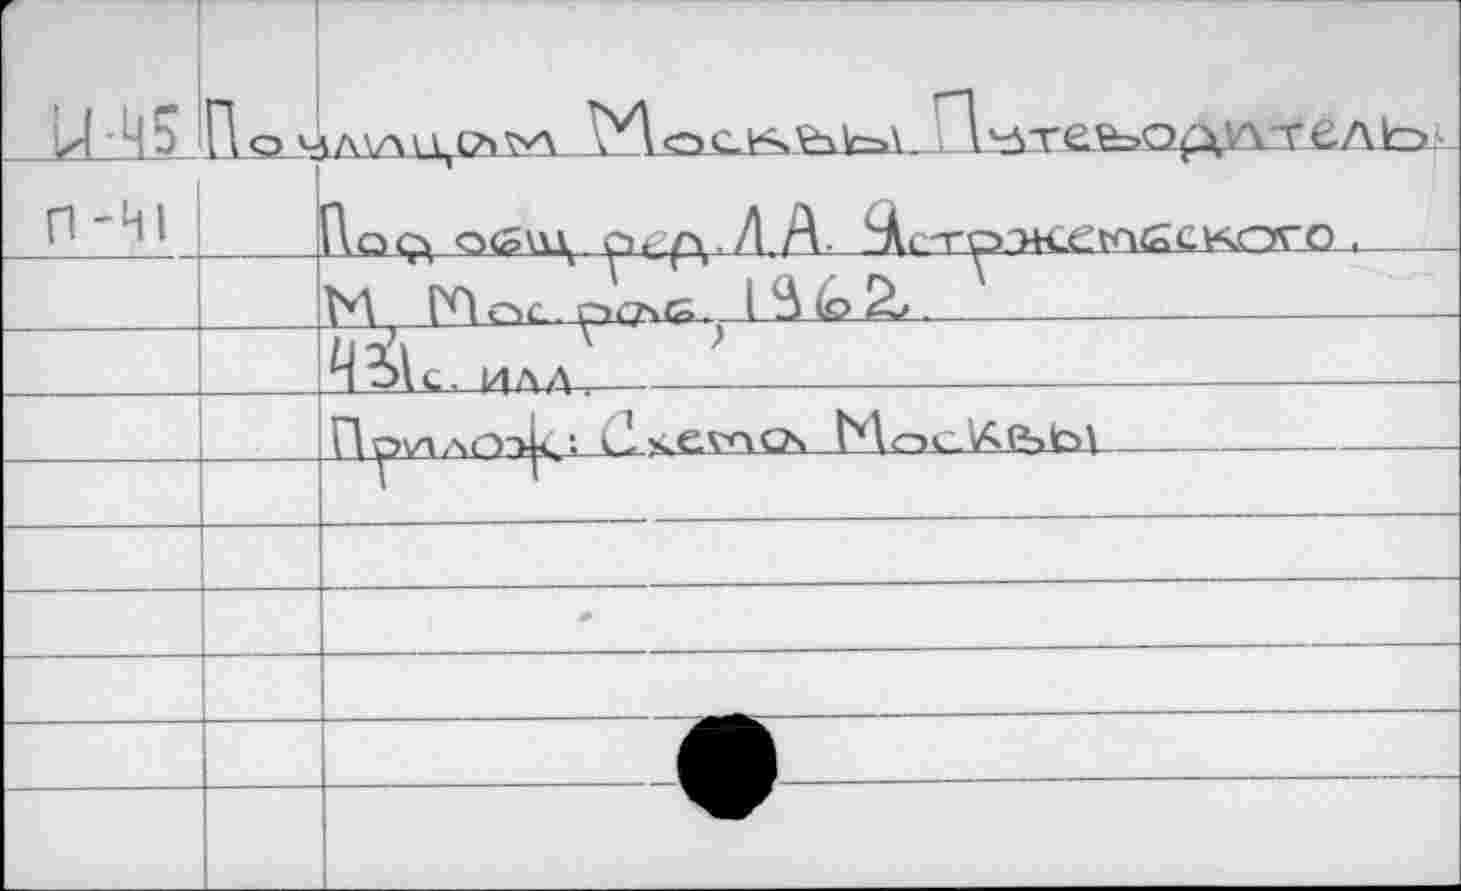 И-45 По улицам Москвы. Путеводитель.
П-41 Под общ. ред. Л.А. Ястржембского,
М., Мос. раб., 1962.
431с. илл.
Прилож: Схема Москвы